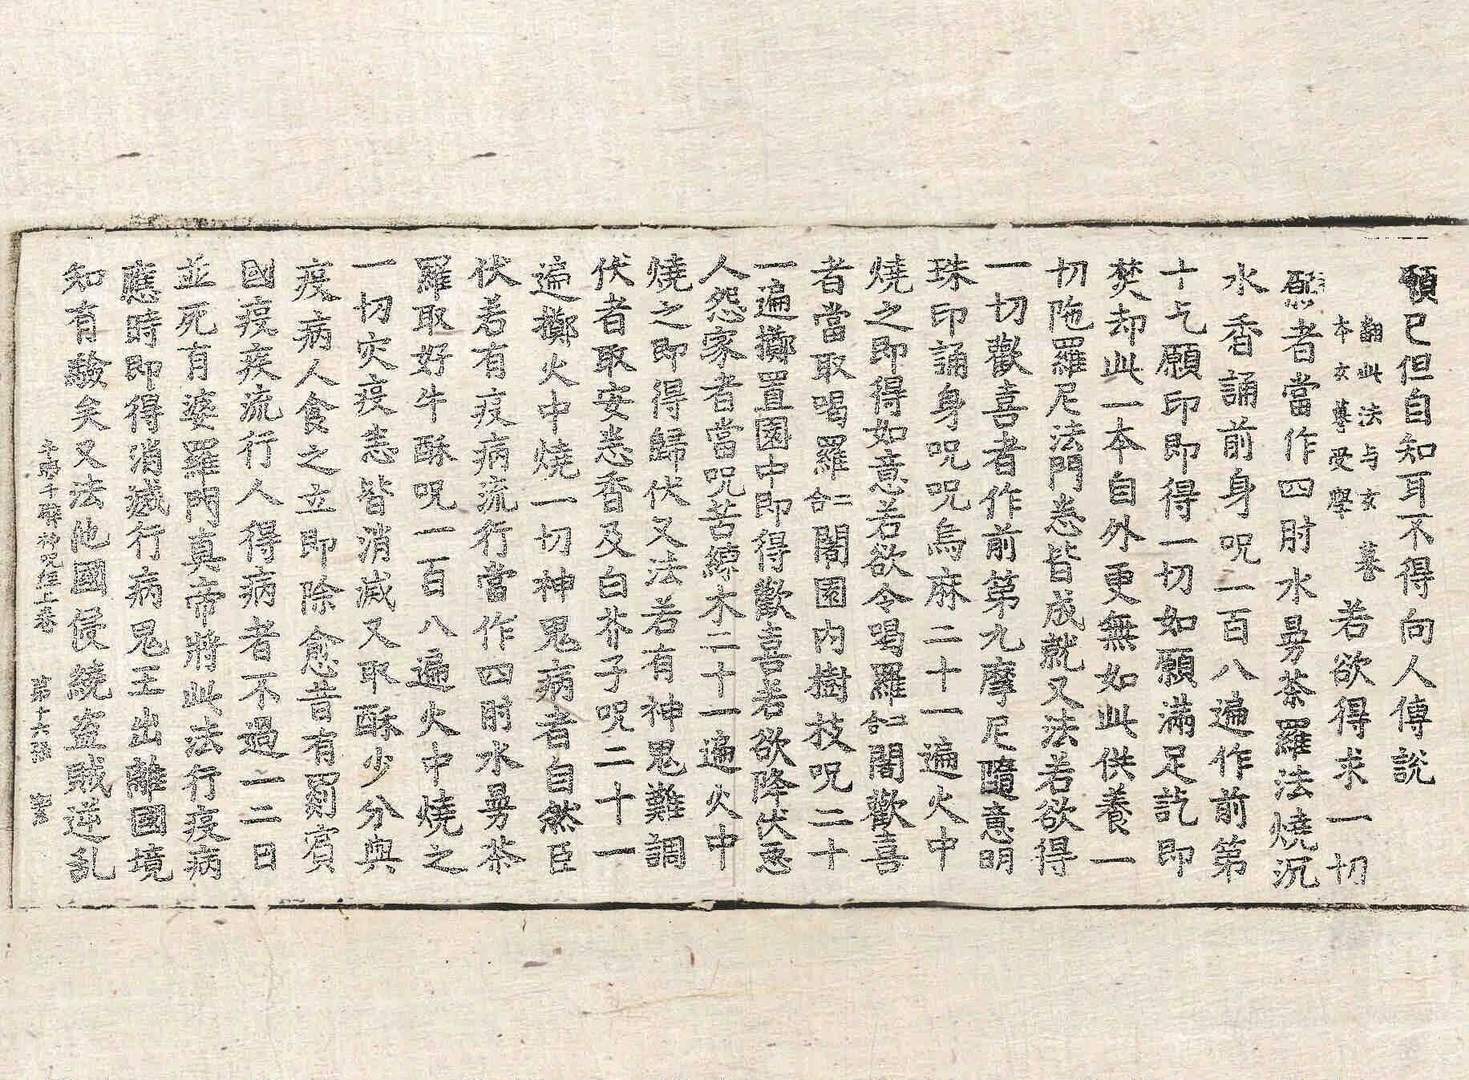 願已但自知耳不得向人傳說
翻此法与玄謩
本玄謩受學
若欲得求一切
願者當作四肘水曼荼羅法燒沉
水香誦前身呪一百八遍作前第
十乞願印即得一切如願滿足訖即
焚却此一本自外更無如此供養一
切陁羅尼法門悉皆成就又法若欲得
一切歡喜者作前第九摩尼隨意明
珠印誦身呪呪烏麻二十一遍火中
燒之即得如意若欲令喝羅二合闍歡喜
者當取喝羅二合闍園內樹技呪二十
一遍擲置園中即得歡喜若欲降伏惡
人怨家者當呪苦練木二十一遍火中
燒之即得歸伏又法若有神鬼難調
伏者取安悉香及白芥子呪二十一
遍擲火中燒一切神鬼病者自然臣
伏若有疫病流行當作四肘水曼荼
羅取好牛酥呪一百八遍火中燒之
一切灾疫悉皆消滅又取酥少分與
疫病人食之立即除愈昔有罽賓
國疫疾流行人得病者不過一二日
並死有婆羅門真帝將此法行疫病
應時即得消滅行病鬼王出離國境
知有驗矣又法他國侵繞盜賊逆乱
千臂神呪經上卷 第十六張